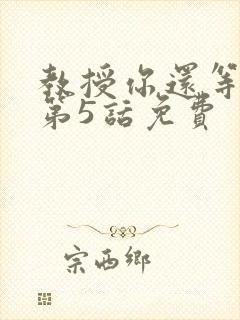 教授你還等
第5話免費
宗西鄉